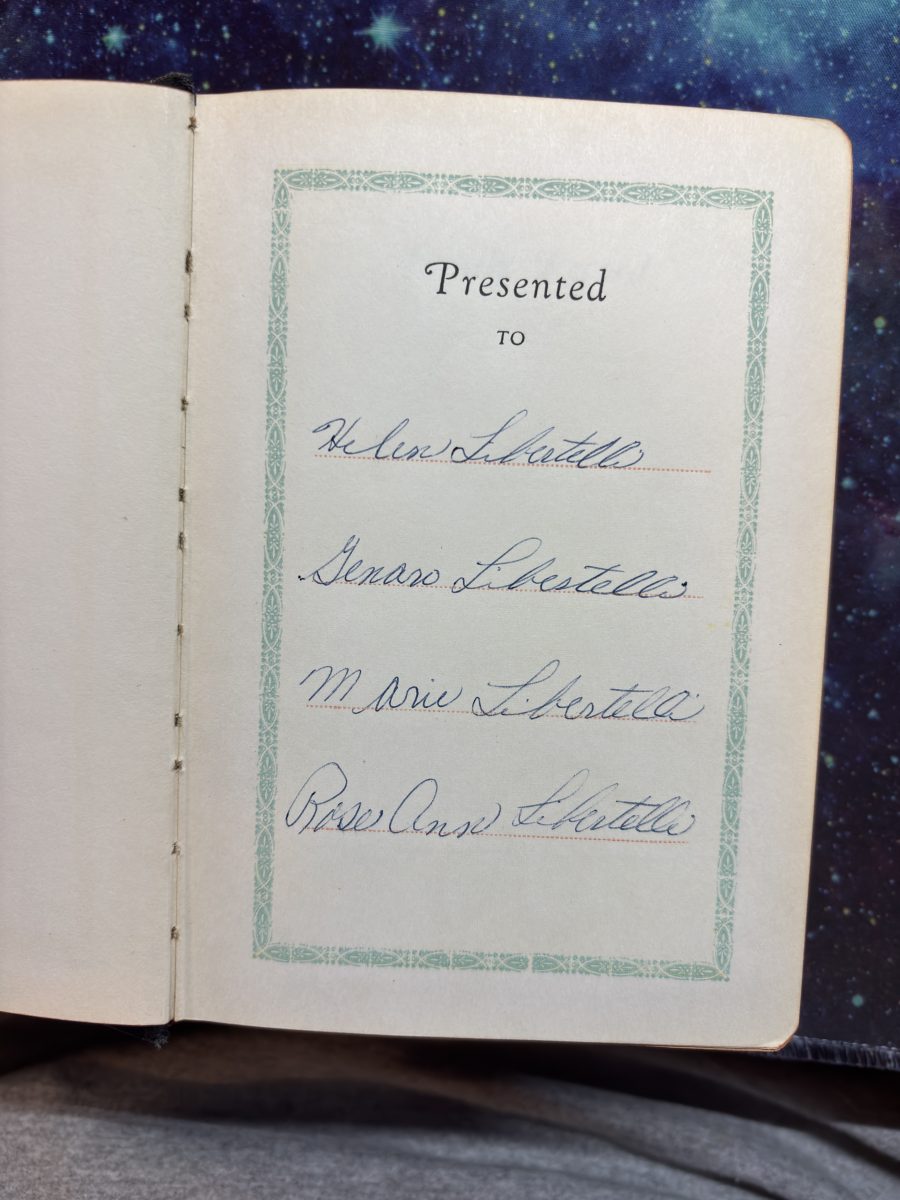 Presented
TO
Helen Libertelli
Genaro Libertelli
Marie Libertelli
Rose Ann Libertelli